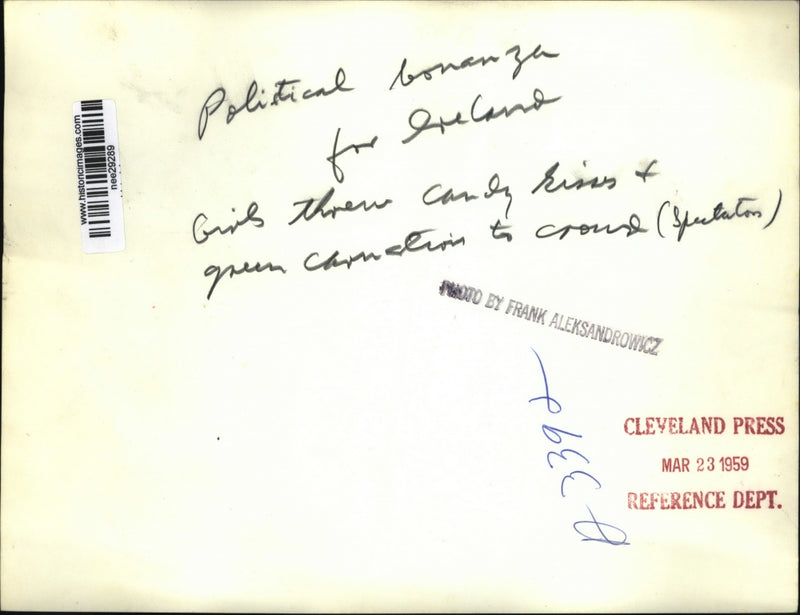 Political bonanza
for Ireland
Girls threw candy kisses +
green carnations to crowd (Spectators)
www.historicimages.com
nee29289
PHOTO BY FRANK ALEKSANDROWICZ
CLEVELAND PRESS
MAR 23 1959
REFERENCE DEPT.